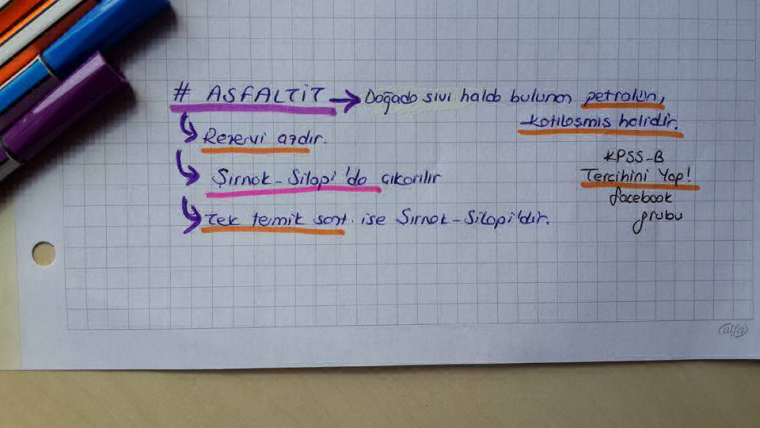 # ASFALTİT → Doğada sıvı halde bulunan petrolün,
katılaşmış halidir.
Rezervi azdır.
Şırnak-Silopi'da çıkarılır
Tek termik sant. ise Şırnak-Silopi'dir.
KPSS-B
Tercihini Yap!
facebook
grubu
alfa